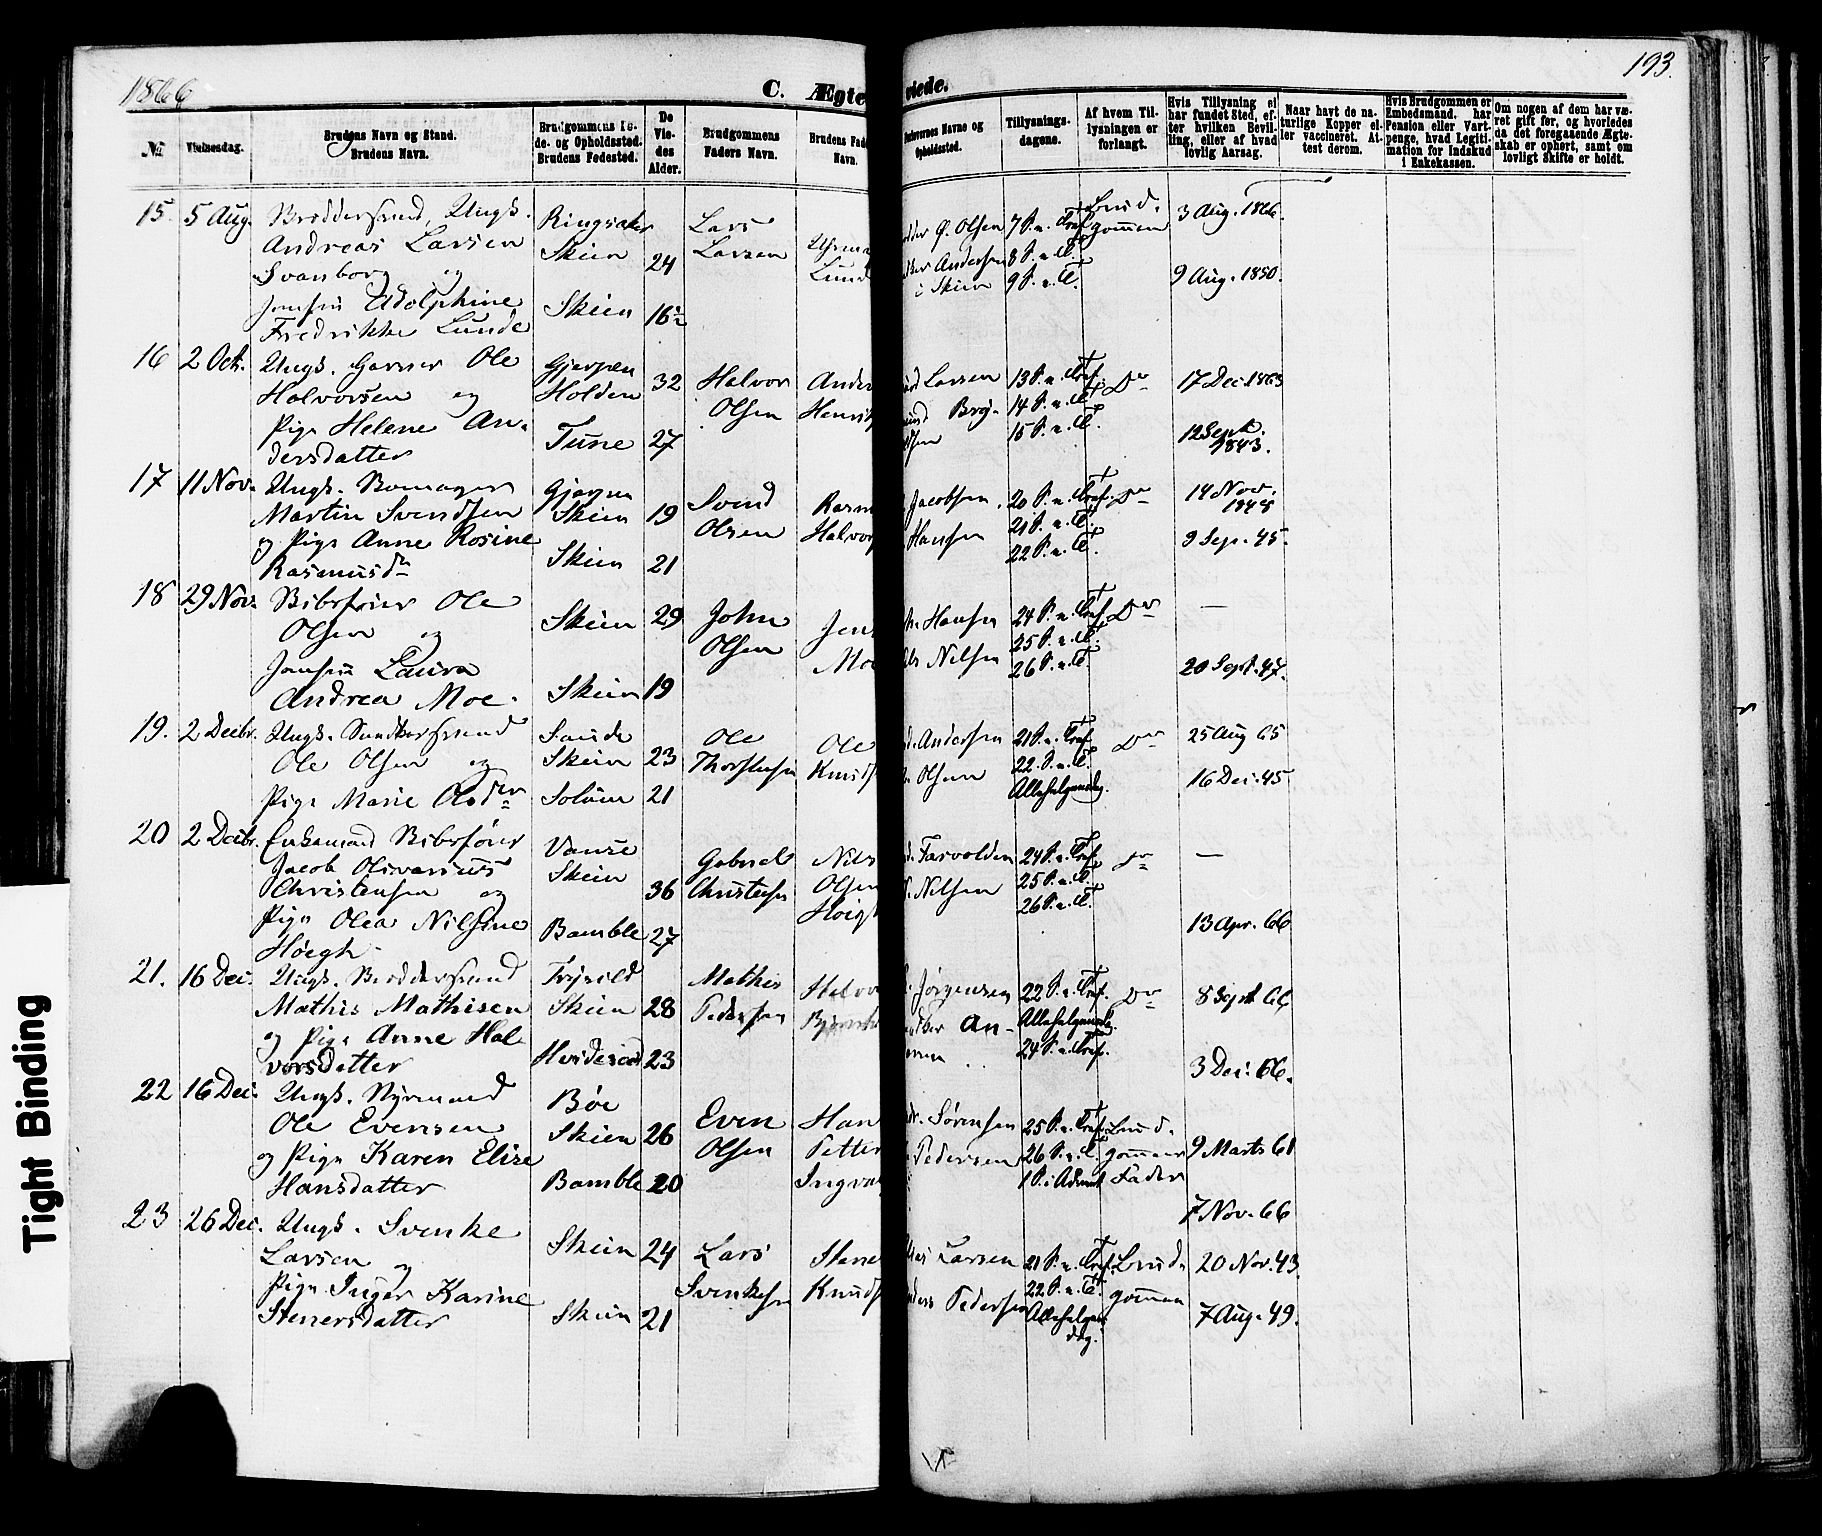 1866
C. Ægte
viede.
193.
№
Vielsesdag.
Brudens Navn og Stand.
Brudens Navn.
Brudgommens Fø-
de- og Opholdssted.
Brudens Fødested.
De
Vie-
des
Alder.
Brudgommens
Faders Navn.
Brudens Fade
Navn.
Forlovernes Navne og
Opholdssted.
Tillysnings-
dagene.
Af hvem Til-
lysningen er
forlangt.
Hvis Tillysning ei
har fundet Sted, ef-
ter hvilken Bevil-
ling, eller af hvad
lovlig Aarsag.
Naar havt de na-
turlige Kopper el-
ler vaccineret. At-
test derom.
Hvis Brudgommen er
Embedsmand, har
Pension eller Vart-
penge, hvad Legiti-
mation for Indskud
i Enkekassen.
Om nogen af dem har væ-
ret gift før, og hvorledes
da det foregaaende Ægte-
skab er ophørt, samt om
lovligt Skifte er holdt.
15. 5 Aug. Brøddersvend, Ungk.
Andreas Larsen
Svanborg og
Jomfru Adolphine
Fredrikke Lunde
Ringsaker
Skien 24
Skien 16½
Lars
Larsen
Uhrma
Lund
Ø. Olsen
Andersen
i Skien
7 S. e. Tref.
8 S. e. T.
9 S. e. T.
Brud-
gommen
3 Aug. 1866.
9 Aug. 1850.
16 2 Oct. Ungk. Garver Ole
Halvorsen og
Pige Helene An-
dersdatter
Gjerpen
Holden 32
Tune 27
Halvor
Olsen
Ander
Henrik
Larsen
13 S. e. Tref.
14 S. e. T.
15 S. e. T.
Do
17 Dec. 1863
12 Sept.
1843.
17 11 Nov. Ungk.
Martin Svendsen
og Pige Anne Rosine
Rasmusdr
Gjerpen
Skien 19
Skien 21
Svend
Olsen
Rasm
Halvors
Jacobsen.
Hansen
20 S. e. Tref.
21 S. e. T.
22 S. e. T.
Do
14 Nov.
9 Sep. 45.
18 29 Nov. Bibsfører Ole
Olsen og
Jomfru Laura
Andrea Moe.
Skien 29
Skien 19
John
Olsen
Jens
Moe
Hansen
Nilsen
24 S. e. Tref.
25 S. e. T.
26 S. e. T.
Do
—
20 Sept. 47.
19. 2 Decbr. Ungk.
Ole Olsen og
Pige Marie Olsdr
Saude
Skien 23
Solum 21
Ole
Thorstensen
Ole
Knuds
Andersen
Olsen
21 S. e. Tref.
22. S. e. T.
Allehelgensdg.
Do
25 Aug 65
16 Dec. 45
20 2 Decbr. Enkemand Bibsfører
Jacob Olivarius
Christensen og
Pige Olea Nilsine
Høegh.
Vanse
Skien 36
Bamble 27
Gabriel
Christensen
Nils
Olsen
Høigh
Farvolden
Nilsen
24 S. e. Tref.
25 S. e. T.
26 S. e. T.
Do
—
13 Apr. 66
21. 16 Dec. Ungk. Brøddersvend
Mathis Mathisen
og Pige Anne Hal
vorsdatter
Trysild
Skien 28
Hviteseid 23
Mathis
Pedersen
Halvor
Jørgensen
An-
22 S. e. Tref.
Allehelgensdg.
24 S. e. Tref.
Do
8 Sept. 66
3 Dec. 66.
22 16 Dec. Ungk. Styrmand
Ole Evensen
og Pige Karen Elise
Hansdatter
Bøe
Skien 26
Bamble 20
Even
Olsen
Han
Petter
Ingval
Sørensen
Pedersen
25 S. e. Tref.
26 S. e. T.
1 S. i Advent
Brud-
gommens
Fader
9 Marts 61
7 Nov. 66
23 26 Dec. Ungk. Svenke
Larsen og
Pige Inger Karine
Stenersdatter
Skien 24
Skien 21
Lars
Svenkesen
Stene
Knuds
Larsen
Pedersen
21 S. e. Tref.
22 S. e. T.
Allehelgens
dag.
Brud-
gommen
20 Nov. 43.
7 Aug. 49.
Tight Binding